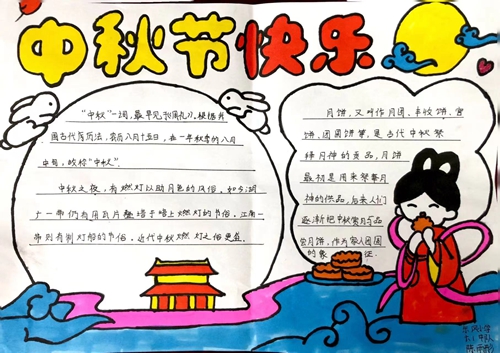 中秋节快乐
“中秋”一词,最早见《周礼》,根据我
国古代历法,农历八月十五日,在一年秋季的八月
中旬,故称“中秋”.
中秋之夜,有燃灯以助月色的风俗,如今湖
广一带仍有用瓦片叠塔于塔上燃灯的节俗,江南一
带则有制灯船的节俗,近代中秋燃灯之俗更盛.
月饼,又叫作月团、丰收饼、宫
饼、团圆饼等,是古代中秋祭
拜月神的贡品,月饼
最初是用来祭奉月
神的供品,后来人们
逐渐把中秋赏月与品
尝月饼,作为家人团圆
的象征.